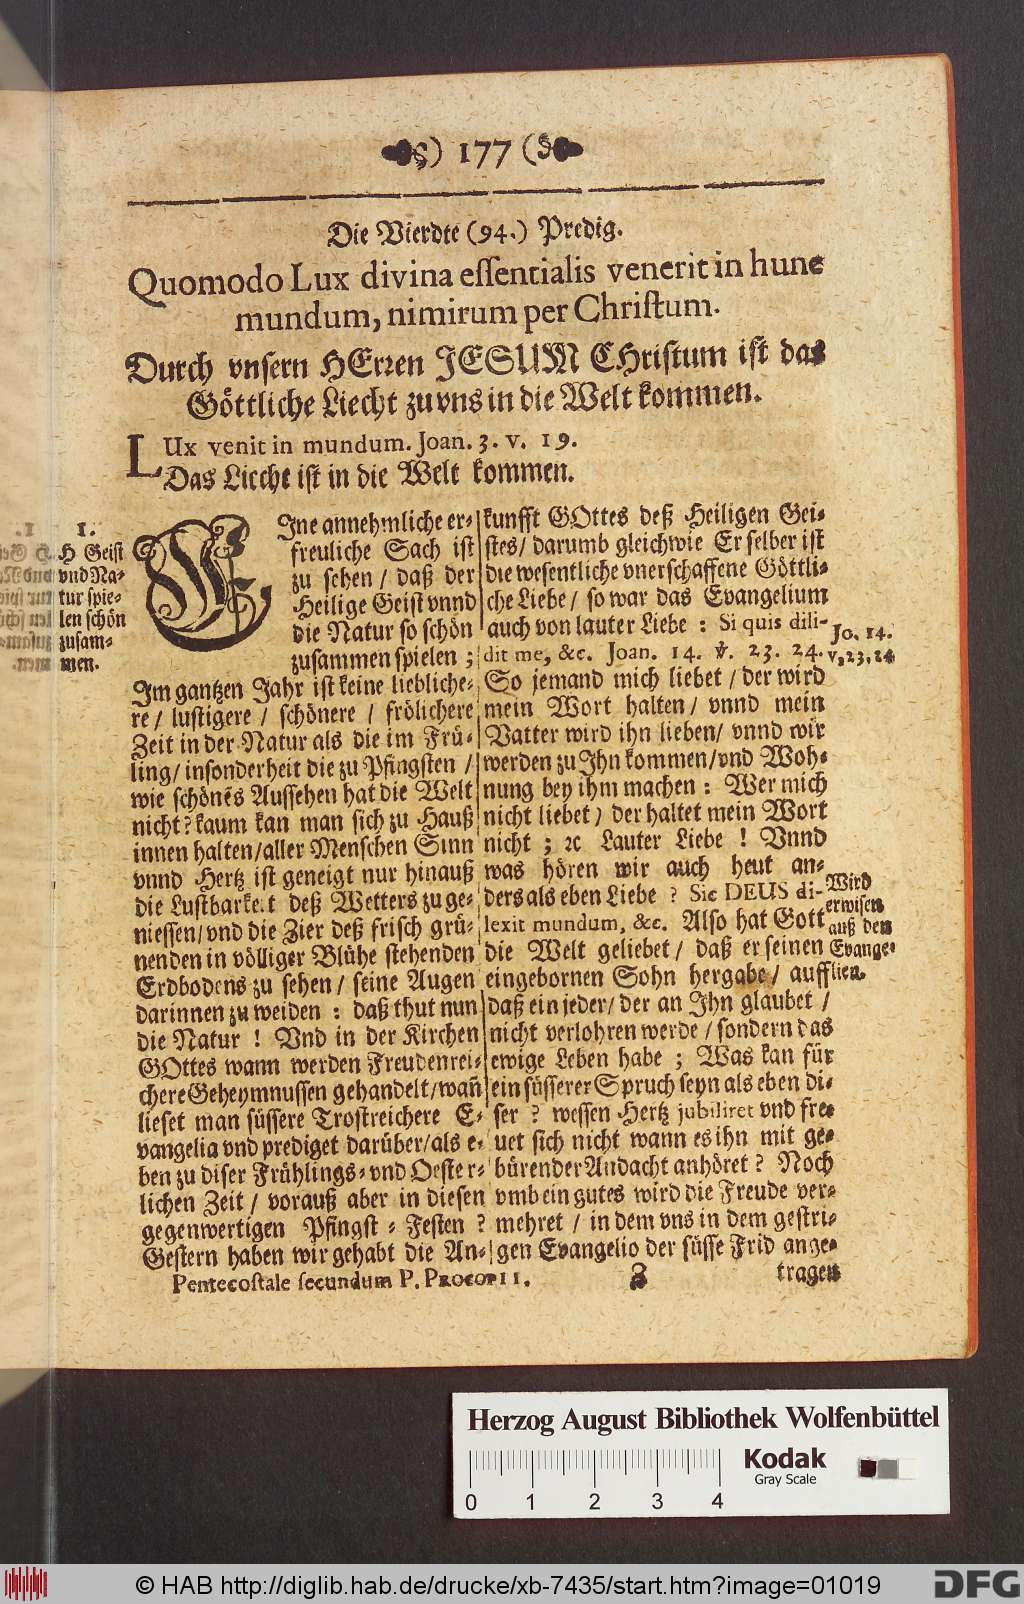 ) 177 (
Die Vierdte (94.) Predig.
Quomodo Lux divina essentialis venerit in hunc
mundum, nimirum per Christum.
Durch vnsern HErren JESUM CHristum ist das
Göttliche Liecht zu vns in die Welt kommen.
LUx venit in mundum. Joan. 3. v. 19.
Das Liecht ist in die Welt kommen.
1.
H Geist
vnd Na-
tur spie-
len schön
zusam-
men.
EJne annehmliche er-
freuliche Sach ist
zu sehen / daß der
Heilige Geist vnnd
die Natur so schön
zusammen spielen ;
Jm gantzen Jahr ist keine liebliche-
re / lustigere / schönere / frölichere
Zeit in der Natur als die im Frü-
ling / insonderheit die zu Pfingsten /
wie schönes Aussehen hat die Welt
nicht? kaum kan man sich zu Hauß
innen halten / aller Menschen Sinn
vnnd Hertz ist geneigt nur hinauß
die Lustbarkeit deß Wetters zu ge-
niessen / vnd die Zier deß frisch grü-
nenden in völliger Blühe stehenden
Erdbodens zu sehen / seine Augen
darinnen zu weiden : daß thut nun
die Natur ! Vnd in der Kirchen
GOttes wann werden Freudenrei-
chere Geheymnussen gehandelt / wañ
lieset man süssere Trostreichere E-
vangelia vnd prediget darüber / als e-
ben zu diser Frühlings- vnd Oester-
lichen Zeit / vorauß aber in diesen
gegenwertigen Pfingst-Festen ?
Gestern haben wir gehabt die An-
kunfft GOttes deß Heiligen Gei-
stes / darumb gleichwie Er selber ist
die wesentliche vnerschaffene Göttli-
che Liebe / so war das Evangelium
auch von lauter Liebe : Si quis dili-
dit me, &c. Joan. 14. v. 23. 24.
So jemand mich liebet / der wird
mein Wort halten / vnnd mein
Vatter wird ihn lieben / vnnd wir
werden zu Jhn kommen / vnd Woh-
nung bey ihm machen : Wer mich
nicht liebet / der haltet mein Wort
nicht ; ꝛc Lauter Liebe ! Vnnd
was hören wir auch heut an-
ders als eben Liebe ? Sic DEUS di-
lexit mundum, &c. Also hat Gott
die Welt geliebet / daß er seinen
eingebornen Sohn hergabe / auff
daß ein jeder / der an Jhn glaubet /
nicht verlohren werde / sondern das
ewige Leben habe ; Was kan für
ein süsserer Spruch seyn als eben di-
ser ? wessen Hertz jubiliret vnd fre-
uet sich nicht wann es ihn mit ge-
bürender Andacht anhöret ? Noch
vmb ein gutes wird die Freude ver-
mehret / in dem vns in dem gestri-
gen Evangelio der süsse Frid ange-
Jo. 14.
v. 23. 24
Wird
erwisen
auß den
Evange-
lien.
Pentecostale secundum P. PROCOPII.
Z
tragen
Herzog August Bibliothek Wolfenbüttel
Kodak
Gray Scale
0 1 2 3 4
© HAB http://diglib.hab.de/drucke/xb-7435/start.htm?image=01019
DFG